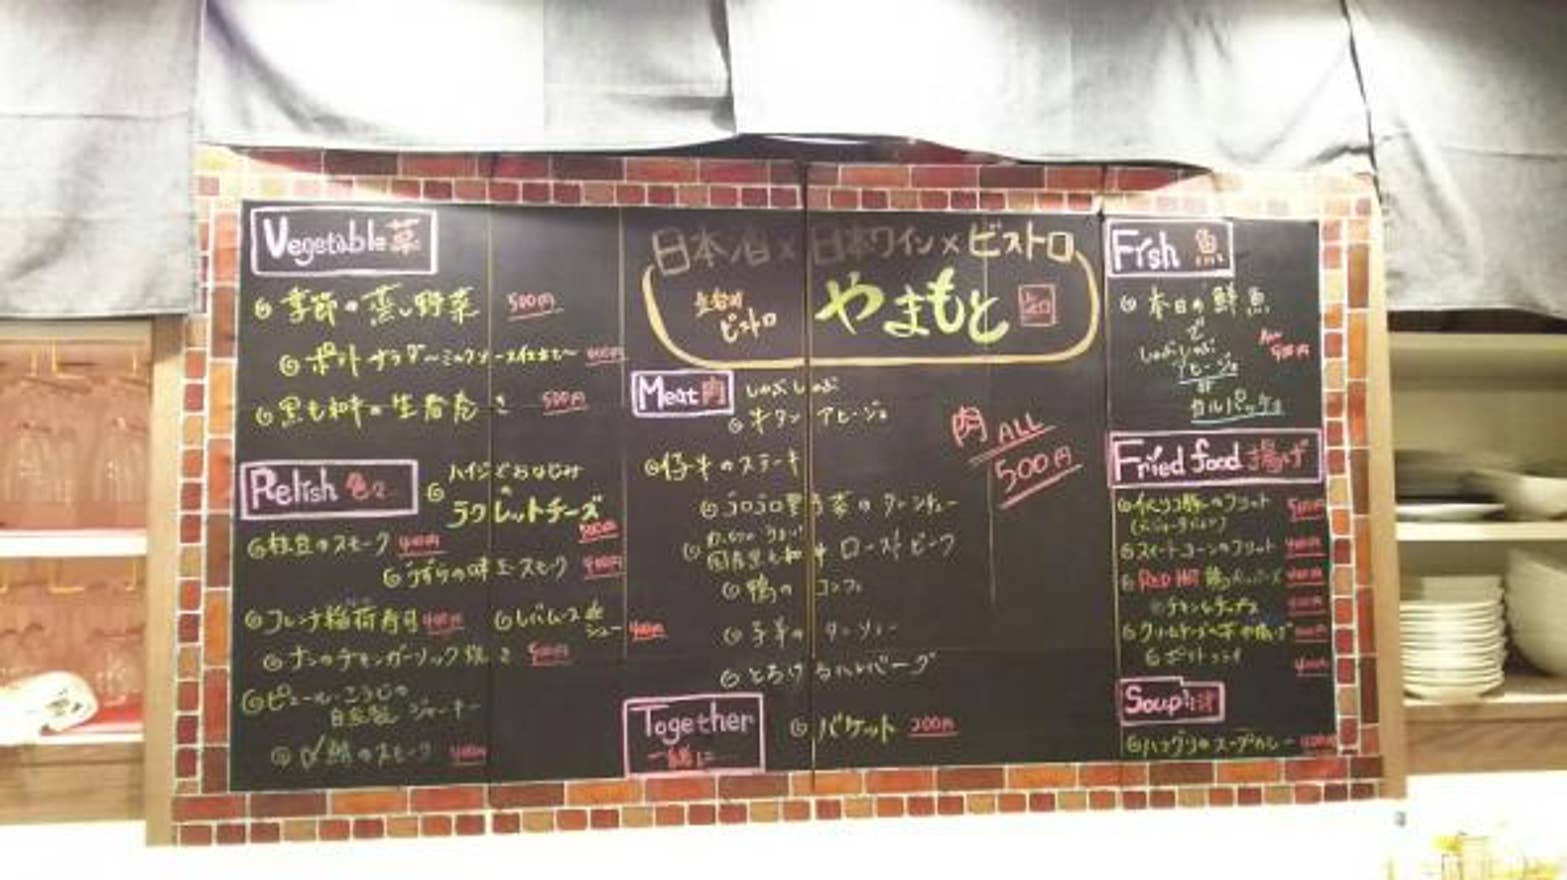 Vegetable 菜
季節の蒸し野菜 500円
ポテトサラダ 400円
黒毛和牛の生春巻き 500円
Relish 色々
ハイジでおなじみ
の
ラクレットチーズ
500円
枝豆のスモーク 400円
うずらの味玉スモーク 400円
フレンチ稲荷寿司 400円
400円
ナンのチキンガーリック焼き 500円
自家製 ジャーキー
〆鯖のスモーク 400円
日本酒×日本ワイン×ビストロ
ビストロ
やまもと
Meat 肉
しゃぶしゃぶ
牛タン アヒージョ
肉 ALL
500円
仔牛のステーキ
ゴロゴロ野菜の タンシチュー
国産黒毛和牛 ローストビーフ
鴨の コンフィ
とろける ハンバーグ
Together
一緒に
バケット 200円
Fish 魚
本日の鮮魚
で
しゃぶしゃぶ
アヒージョ
or
カルパッチョ
Fried food 揚げ
イベリコ豚のフリット 500円
スイートコーンのフリット 400円
RED HOT
チキン&チップス
クリームチーズ
ポテトフライ
400円
Soup 汁
ハマグリのスープカレー